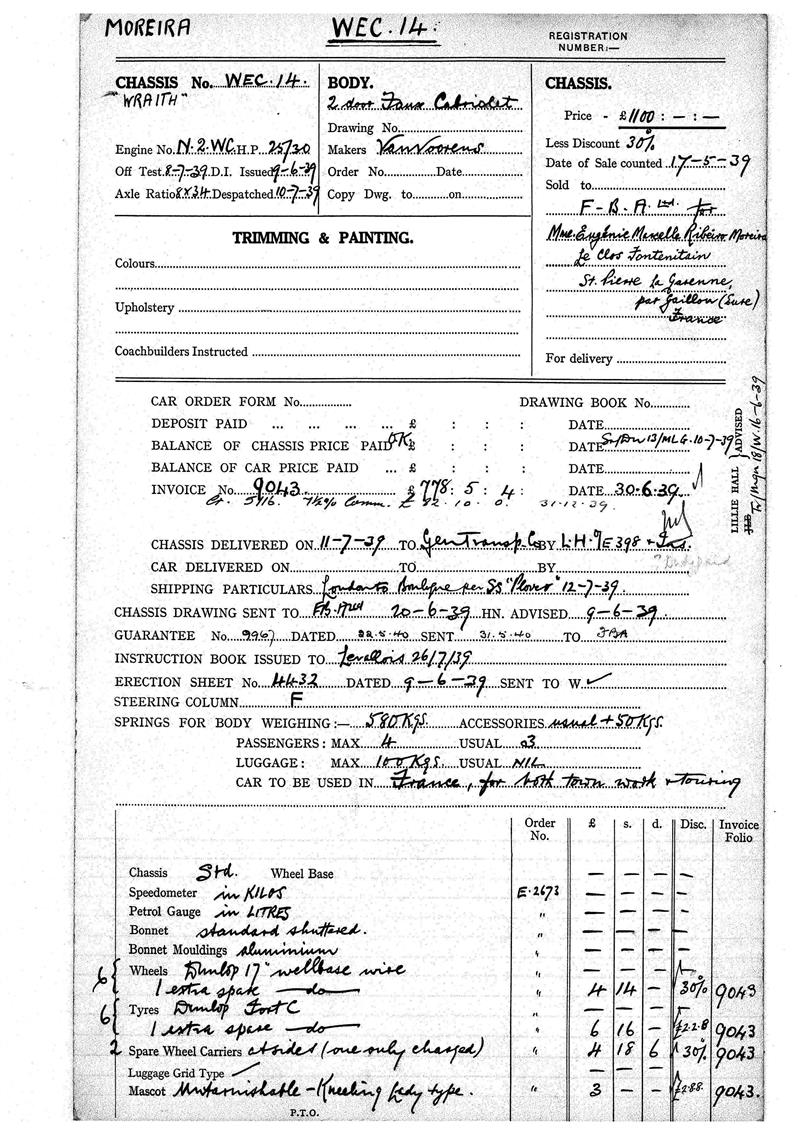 MOREIRA
WEC.14:
REGISTRATION
NUMBER:—
CHASSIS No. WEC.14.
"WRAITH"
Engine No. N.2.WC. H.P. 25/30
Off Test. 8-7-39. D.I. Issued 9-6-39
Axle Ratio 8X34. Despatched 10-7-39
BODY.
2 door Faux Cabriolet
Drawing No.
Makers VanVoorens
Order No. Date
Copy Dwg. to on
CHASSIS.
Price - £1100 : — : —
Less Discount 30%
Date of Sale counted 17-5-39
Sold to
F-B.A Ltd. for
Mme. Eugénie Marcelle Ribeiro Moreira
Le Clos Fontenitain
St. Pierre la Garenne,
par Gaillon (Eure)
France
For delivery
TRIMMING & PAINTING.
Colours
Upholstery
Coachbuilders Instructed
CAR ORDER FORM No. DRAWING BOOK No.
DEPOSIT PAID ... ... ... ... £ : : : DATE
BALANCE OF CHASSIS PRICE PAID OK £ : : : DATE 13/MLG.10-7-39
BALANCE OF CAR PRICE PAID ... £ : : : DATE
INVOICE No. 9043. £778: 5 : 4: DATE 30.6.39.
Cr. 5716. 7½% Comm. £ 10. 0. 31.12.39.
LILLIE HALL } ADVISED
16-6-39
CHASSIS DELIVERED ON 11-7-39 TO Gen Transp. Co BY L.H. E398
CAR DELIVERED ON TO BY
SHIPPING PARTICULARS London to Boulogne per SS "Plover" 12-7-39.
CHASSIS DRAWING SENT TO 20-6-39 HN. ADVISED 9-6-39.
GUARANTEE No. 9967 DATED 22.5.40 SENT 31.5.40 TO FBA
INSTRUCTION BOOK ISSUED TO Levallois 26/7/39
ERECTION SHEET No. 4432 DATED 9-6-39 SENT TO W. ✓
STEERING COLUMN F
SPRINGS FOR BODY WEIGHING:— 580 KGS. ACCESSORIES usual + 50 KGS.
PASSENGERS: MAX. 4 USUAL 3
LUGGAGE: MAX. 100 KGS. USUAL NIL
CAR TO BE USED IN France, for both town work & touring
Order No. £ s. d. Disc. Invoice Folio
Chassis Std. Wheel Base — — — —
Speedometer in KILOS E.2673 — — — —
Petrol Gauge in LITRES " — — — —
Bonnet standard shuttered. " — — — —
Bonnet Mouldings aluminium " — — — —
6 { Wheels Dunlop 17" wellbase wire " — — —
1 extra spare —do— " 4 14 — 30% 9043
6 { Tyres Dunlop Fort C — — —
1 extra spare —do— " 6 16 — £2.2.8 9043
2 Spare Wheel Carriers at sides (one only charged) " 4 18 6 30% 9043
Luggage Grid Type —
Mascot Untarnishable - Kneeling Lady type. " 3 — — 9043.
P.T.O.